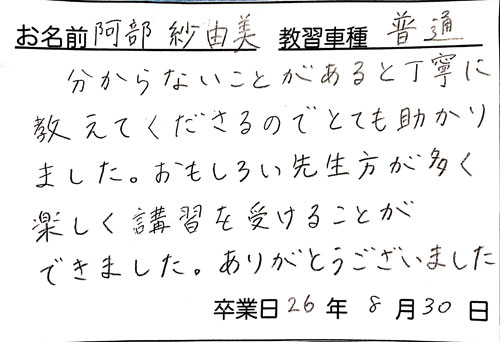 お名前 阿部 紗由美 教習車種 普通
分からないことがあると丁寧に
教えてくださるのでとても助かり
ました。おもしろい先生方が多く
楽しく講習を受けることが
できました。ありがとうございました
卒業日26年 8月30日